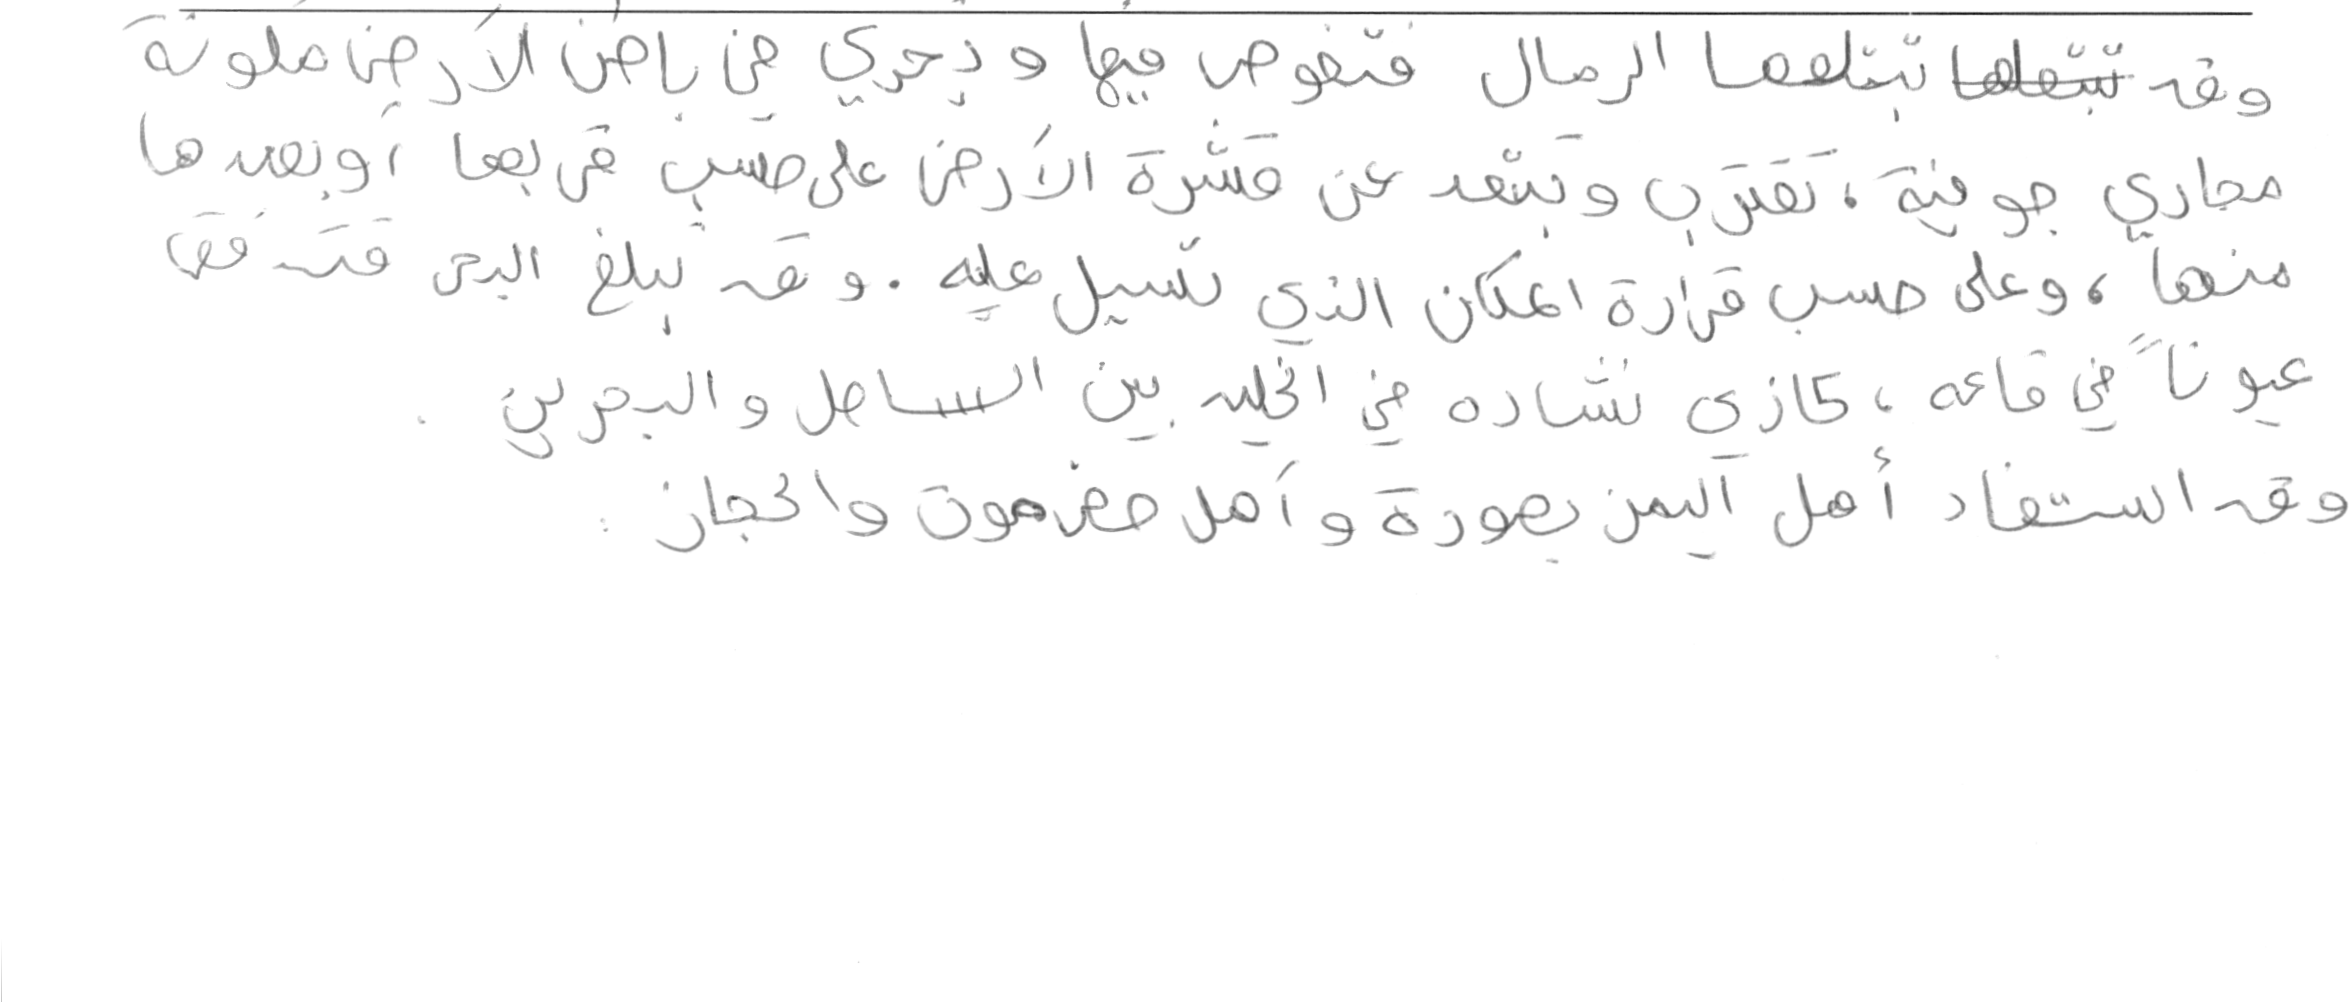 وقد تبتلعها الرمال فتغوص فيها وتجري في باطن الأرض ملونة
مجاري جوفية، تقترب وتبتعد عن قشرة الأرض على حسب قربها أو بعدها
منها، وعلى حسب قرارة المكان الذي تسيل عليه. وقد تبلغ البحر فتدفق
عيوناً في قاعه، كازي نشاده في الخليه بين الساحل والبحرين.
وقد استفاد أهل اليمن بصورة وأهل حضرموت والحجاز.